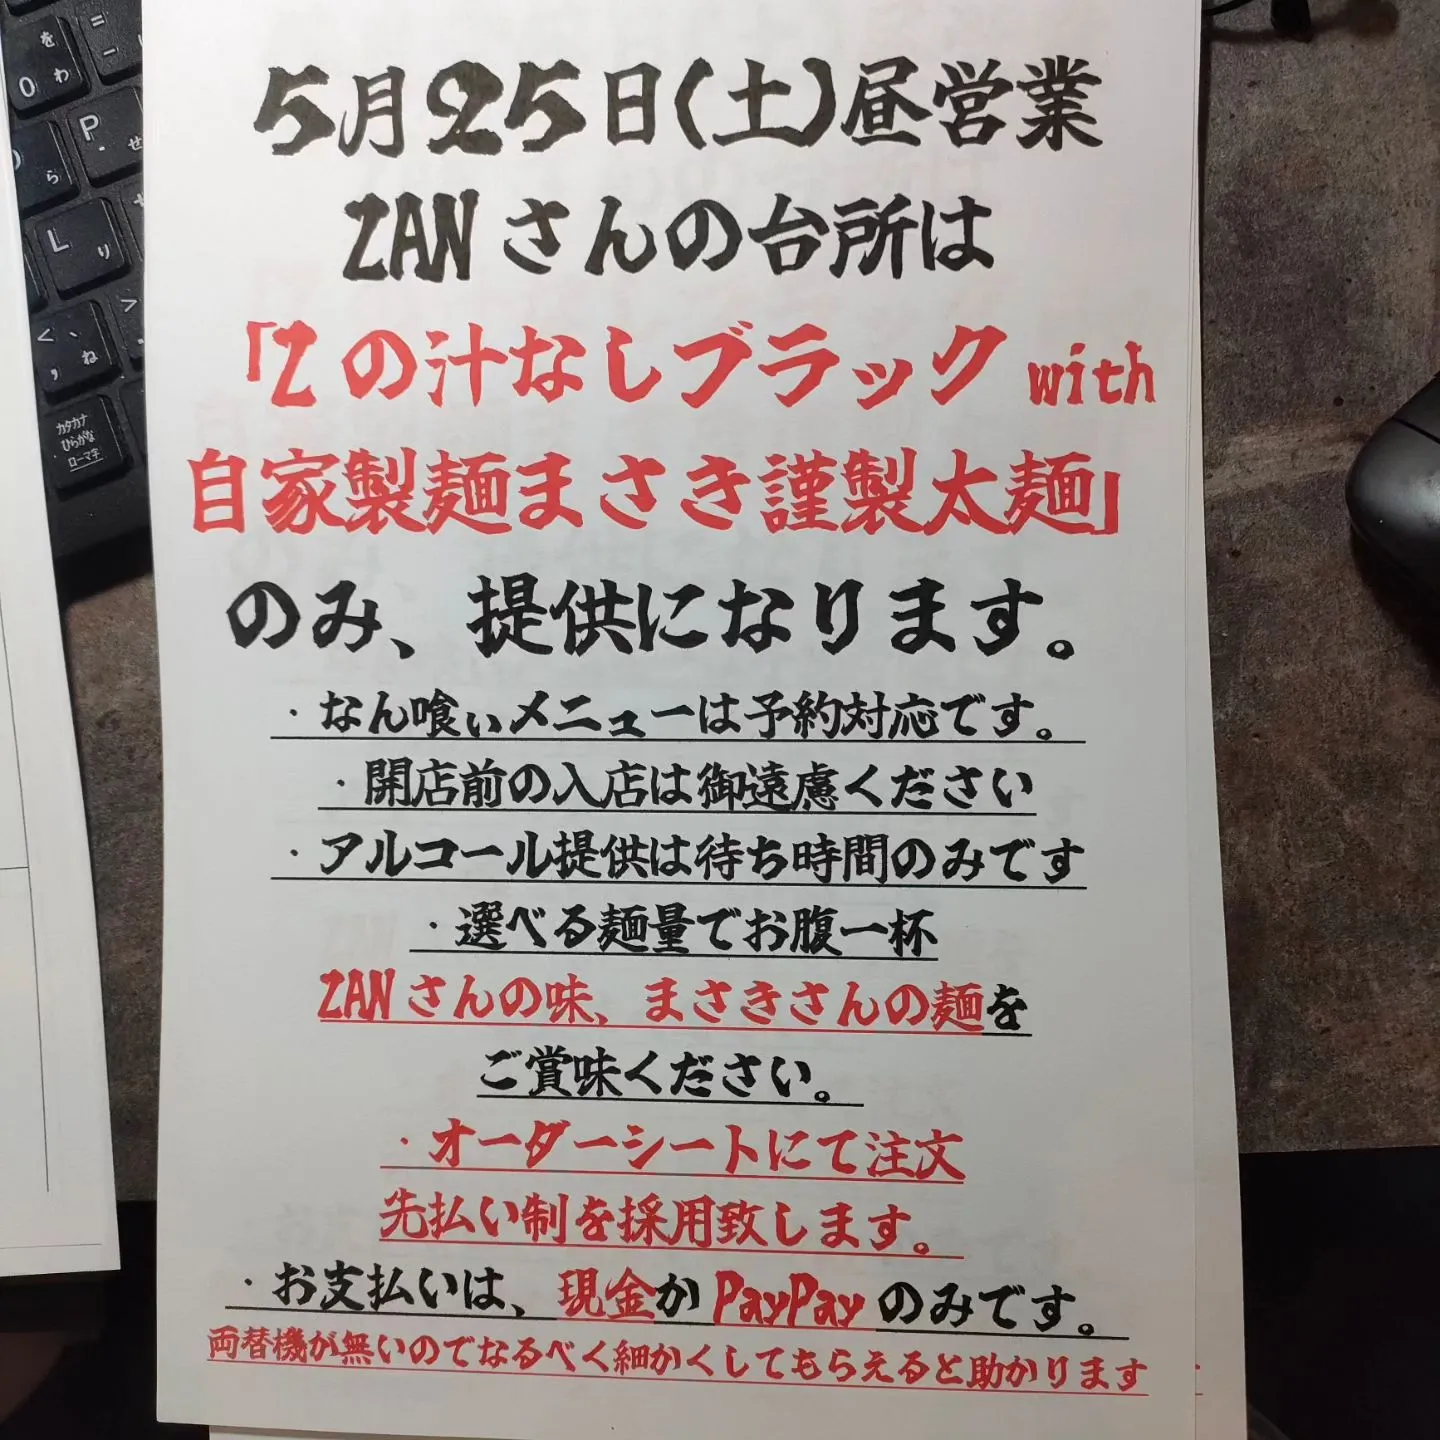 5月25日(土)昼営業
ZANさんの台所は
「Zの汁なしブラックwith
自家製麺まさき謹製太麺」
のみ、提供になります。
・なん喰ぃメニューは予約対応です。
・開店前の入店は御遠慮ください
・アルコール提供は待ち時間のみです
・選べる麺量でお腹一杯
ZANさんの味、まさきさんの麺を
ご賞味ください。
・オーダーシートにて注文
先払い制を採用致します。
・お支払いは、現金かPayPayのみです。
両替機が無いのでなるべく細かくしてもらえると助かります
を
わ
P
せ
L
り
ら
ね
カタカナ
ひらがな
ローマ字